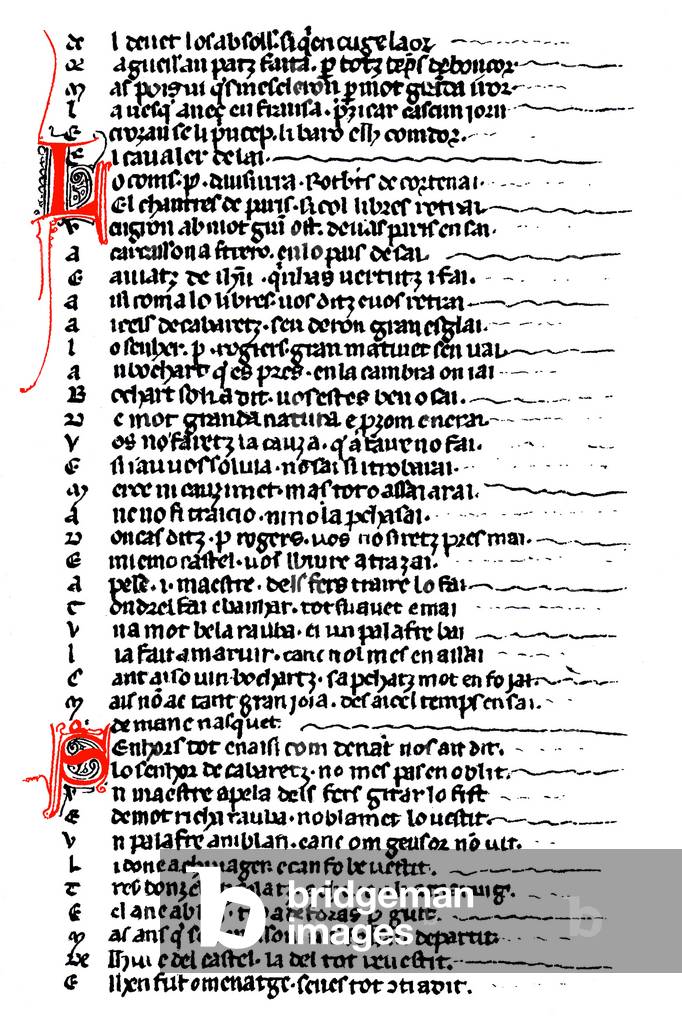 de l denet los absolt. si q̃n cuge laor
aguessan patz faita. p̃ totz tẽps de bon cor
M as poig ui q̃s mescleron p̃ mot gr̃da iror
l auesq̃ anec en fransa. p̃zicar cascun iorn
E crozan se li p̃ncep. li baro elh comtor.
E i caualer de lai.
L o coms. p. dauisurra. Rotb̃tz de cortenai.
El chantres de paris. si col libres retrai
ab mot gñ ost. deuas paris en sai.
a carcassona ñtrero. en lo pais de sai
E auiatz de ih̃u. q̃ihas uertutz i fai.
a isi com a lo libres. uos ditz e uos retrai
a icels de cabaretz. sen deron gran esglai.
l o senher. p. rogiers. gran matinet sen uai
a n bochart q̃ es pres. en la cambra on iai
B ochart so lh a dit. uos estes ben o sai.
D e mot granda natura e prom e uerai
V os no faretz la cauza. q̃ a faire no fai.
E si i auuos soluia. no sai si i trobarai.
M erce ni cauzimet. mas tot o assai arai.
A nc no fi traicio. ni no la p̃chasai.
D oncas ditz. p rogers. uos no siretz pres mai.
E mi e mo castel. uos lliure atrazai.
A pele. i. maestre. dels fers traire lo fai
T ondrel fai e banhar. tot suauet e mai
V na mot bela rauba. ei un palafre bai
l i a fait amaruir. canc nol mes en assai
C ant aiso uin bochartz. sapchatz mot en fo iai.
M ais nõ ac tant gran ioia. des aicel temps en sai.
q̃ de maire nasquet.
S Enhors tot en aisi com denãt nos aũ dit.
lo senhor de cabaretz. no mes pas en oblit.
n maestre apela dels fers gitar lo fist
E de mot richa rauba. noblamet lo uestit.
V n palafre amblan. canc om gensor nõ uit.
L i done a chiuager. e can fo be uestit.
T res donzels
E el anc ab
M as ans q̃ departit
De lh ui e del castel. la del tot reuestit.
E lh en fut omenatge. senes tot ɔtradit.
bridgeman
images
b
b